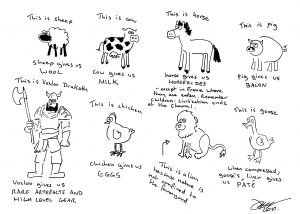 This is sheep
sheep gives us
WOOL
This is cow
cow gives us
MILK
This is horse
horse gives us
HORSERIDES
- except in France where
they are eaten. Remember
children: civilisation ends
at the channel
This is pig
pig gives us
BACON
This is Voslov Drakath
Voslov gives us
RARE ARTEFACTS AND
HIGH LEVEL GEAR
This is chicken
chicken gives us
EGGS
This is a lion
because nature is
not confined to
the farmyard
This is goose
when compressed,
goose's liver gives
us PATÉ